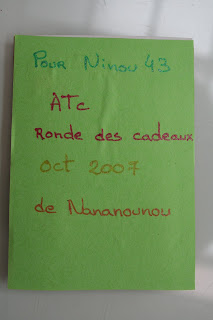 Pour Ninou 43
ATc
Ronde des cadeaux
Oct 2007
de Nananounou